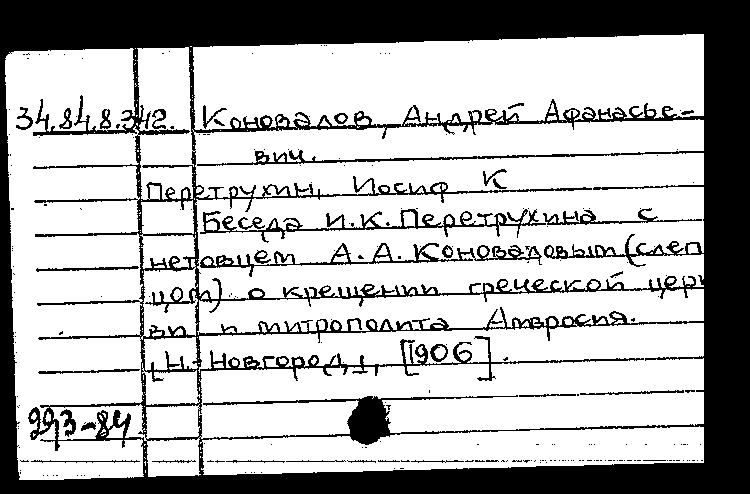 34.84.8.342. Коновалов, Андрей Афанасье-
вич.
Перетрухин, Иосиф К
Беседа И.К. Перетрухина с
нетовцем А.А. Коноваловым (слеп
цом) о крещении греческой церк
ви и митрополита Амвросия.
[Н.-Новгород], [1906].
293-84